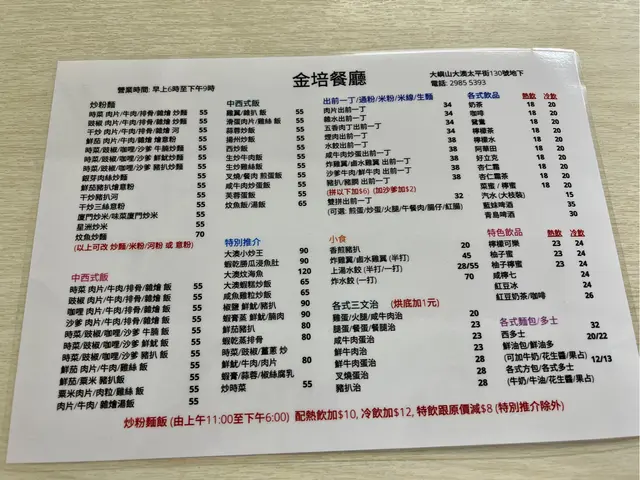 金培餐廳
營業時間: 早上6時至下午9時
大嶼山大澳太平街130號地下
電話: 2985 5393
炒粉麵
時菜 肉片/牛肉/排骨/雜燴 炒麵 55
豉椒 肉片/牛肉/排骨/雜燴 炒麵 55
干炒 肉片/牛肉/排骨/雜燴 河 55
鮮茄 肉片/牛肉/雜燴 燴意粉 55
時菜/豉椒/咖哩/沙爹 牛腩炒麵 55
時菜/豉椒/咖哩/沙爹 鮮魷炒麵 55
時菜/豉椒/咖哩/沙爹 豬扒炒麵 55
銀芽肉絲炒麵 55
鮮茄豬扒燴意粉 55
干炒豬扒河 55
干炒三絲意粉 55
廈門炒米/味菜廈門炒米 55
星洲炒米 55
炆魚炒麵 70
(以上可改 炒麵/米粉/河粉 或 意粉)
中西式飯
時菜 肉片/牛肉/排骨/雜燴 飯 55
豉椒 肉片/牛肉/排骨/雜燴 飯 55
咖哩 肉片/牛肉/排骨/雜燴 飯 55
沙爹 肉片/牛肉/排骨/雜燴 飯 55
時菜/豉椒/咖哩/沙爹 牛腩 飯 55
時菜/豉椒/咖哩/沙爹 鮮魷 飯 55
時菜/豉椒/咖哩/沙爹 豬扒 飯 55
鮮茄 肉片/牛肉/雞絲 飯 55
鮮茄/粟米 豬扒飯 55
粟米肉片/肉粒/雞絲 飯 55
肉片/牛肉/ 雜燴湯飯 55
中西式飯
雞翼/雞扒 飯 55
滑蛋肉片/雞絲 飯 55
蒜蓉炒飯 55
揚州炒飯 55
西炒飯 55
生炒牛肉飯 55
生炒雞絲飯 55
叉燒/餐肉 煎蛋飯 55
咸牛肉炒蛋飯 55
芙蓉蛋飯 55
炆魚飯/湯飯 65
特別推介
大澳小炒王 90
蝦乾勝瓜浸魚肚 90
大澳炆海魚 120
大澳蝦糕炒飯 65
咸魚雞粒炒飯 65
椒鹽 鮮魷/豬扒 90
蝦膏蒸 鮮魷/腩肉 90
鮮茄豬扒 80
蝦乾蒸排骨 80
時菜/豉椒/薑蔥 炒
鮮魷/牛肉/肉片 80
蝦膏/蒜蓉/椒絲腐乳
炒時菜 55
出前一丁/通粉/米粉/米線/生麵
肉片出前一丁 34
雞水出前一丁 34
五香肉丁出前一丁 34
煙肉出前一丁 34
水餃出前一丁 38
咸牛肉炒蛋出前一丁 38
炸雞翼/鹵水雞翼 出前一丁 38
沙爹牛肉/鮮牛肉 出前一丁 38
豬扒/豬潤 出前一丁 38
(拼以下加$6) (加沙爹加$2)
雙拼出前一丁 32
(可選: 煎蛋/炒蛋/火腿/午餐肉/腸仔/紅腸)
小食
香煎豬扒 20
炸雞翼/鹵水雞翼 (半打) 45
上湯水餃 (半打/一打) 28/55
炸水餃 (一打) 70
各式三文治 (烘底加1元)
雞蛋/火腿/咸牛肉治 20
腿蛋/餐蛋/餐腿治 23
咸牛肉蛋治 23
鮮牛肉治 23
鮮牛肉蛋治 28
叉燒蛋治 28
豬扒治 28
各式飲品 熱飲 冷飲
奶茶 18 20
咖啡 18 20
鴛鴦 18 20
檸檬茶 18 20
檸檬水 18 20
阿華田 18 20
好立克 18 20
杏仁霜 18 20
杏仁霜茶 18 20
菜蜜 / 檸蜜 18 20
汽水 (大枝裝) 15
藍妹啤酒 35
青島啤酒 30
特色飲品 熱飲 冷飲
檸檬可樂 23 24
柚子蜜 23 24
柚子檸蜜 23 24
咸檸七 24
紅豆冰 24
紅豆奶茶/咖啡 26
各式麵包/多士
西多士 32
鮮油包/鮮油多 20/22
(可加牛奶/花生醬/果占)
各式方包/各式多士 12/13
(牛奶/牛油/花生醬/果占)
炒粉麵飯 (由上午11:00至下午6:00) 配熱飲加$10, 冷飲加$12, 特飲跟原價減$8 (特別推介除外)